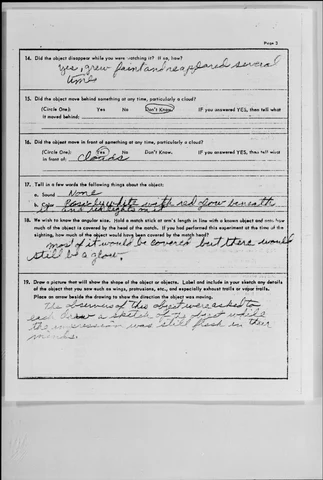 Page 3
14. Did the object disappear while you were watching it? If so, how?
Yes, grew faint and reappeared several
times
15. Did the object move behind something at any time, particularly a cloud?
(Circle One): Yes No Don't Know. IF you answered YES, then tell what
it moved behind:
16. Did the object move in front of something at any time, particularly a cloud?
(Circle One): Yes No Don't Know. IF you answered YES, then tell what
in front of: Clouds
17. Tell in a few words the following things about the object:
a. Sound None
b. Color white with red glow beneath
it, and on it
18. We wish to know the angular size. Hold a match stick at arm's length in line with a known object and note how
much of the object is covered by the head of the match. If you had performed this experiment at the time of the
sighting, how much of the object would have been covered by the match head?
most of it would be covered but there would
still be a glow.
19. Draw a picture that will show the shape of the object or objects. Label and include in your sketch any details
of the object that you saw such as wings, protrusions, etc., and especially exhaust trails or vapor trails.
Place an arrow beside the drawing to show the direction the object was moving.
The observers of this object were asked to
each draw a sketch of the object while
the impression was still fresh in their
minds.